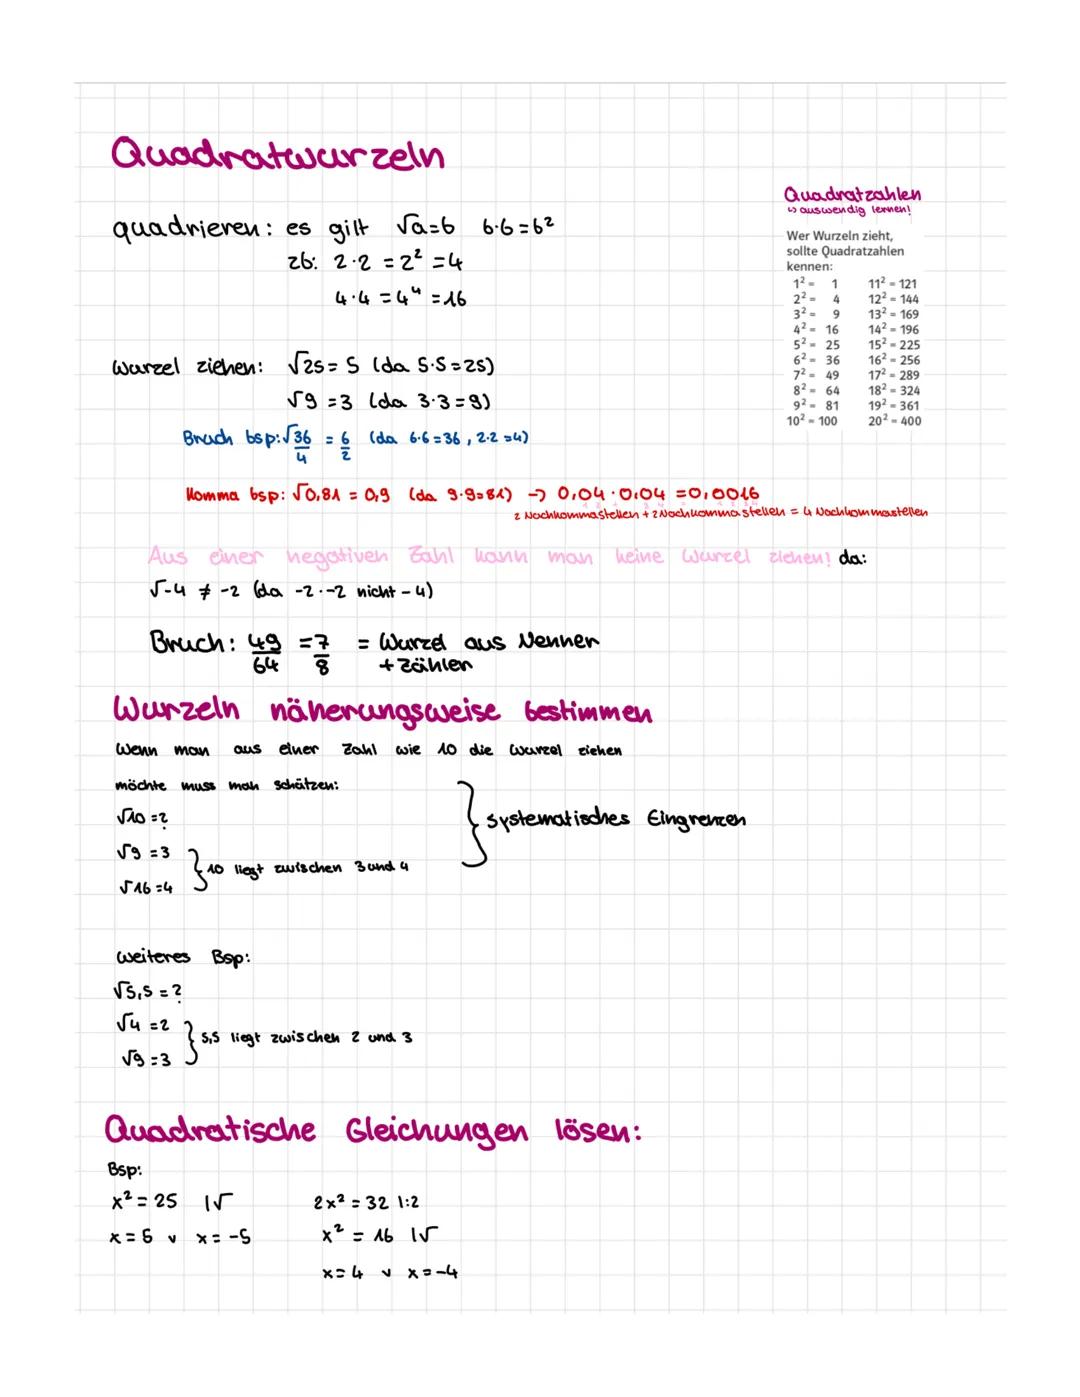 Quadratwurzeln
quadrieren: es gilt √a=b b·b=b²
zb: 2·2 = 2² = 4
4·4 = 4⁴ = 16
Quadratzahlen
↳ auswendig lernen!
Wer Wurzeln zieht,
sollte Quadratzahlen
kennen:
1² = 1 11² = 121
2² = 4 12² = 144
3² = 9 13² = 169
4² = 16 14² = 196
5² = 25 15² = 225
6² = 36 16² = 256
7² = 49 17² = 289
8² = 64 18² = 324
9² = 81 19² = 361
10² = 100 20² = 400
Wurzel ziehen: √25 = 5 (da 5·5=25)
√9 = 3 (da 3·3=9)
Bruch bsp: √36/4 = 6/2 (da 6·6=36, 2·2=4)
Komma bsp: √0,81 = 0,9 (da 9·9=81) → 0,04 · 0,04 = 0,0016
2 Nachkommastellen + 2 Nachkommastellen = 4 Nachkommastellen
Aus einer negativen Zahl kann man keine Wurzel ziehen! da:
√-4 ≠ -2 (da -2·-2 nicht -4)
Bruch: 49/64 = 7/8 = Wurzel aus Nenner
+ Zählen
Wurzeln näherungsweise bestimmen
Wenn man aus einer Zahl wie 10 die Wurzel ziehen
möchte muss man schätzen:
√10 = ?
√9 = 3
√16 = 4
} 10 liegt zwischen 3 und 4
} systematisches Eingrenzen
weiteres Bsp:
√5,5 = ?
√4 = 2
√9 = 3
} 5,5 liegt zwischen 2 und 3
Quadratische Gleichungen lösen:
Bsp:
x² = 25 |√ 2x² = 32 |:2
x = 5 ∨ x = -5 x² = 16 |√
x = 4 ∨ x = -4